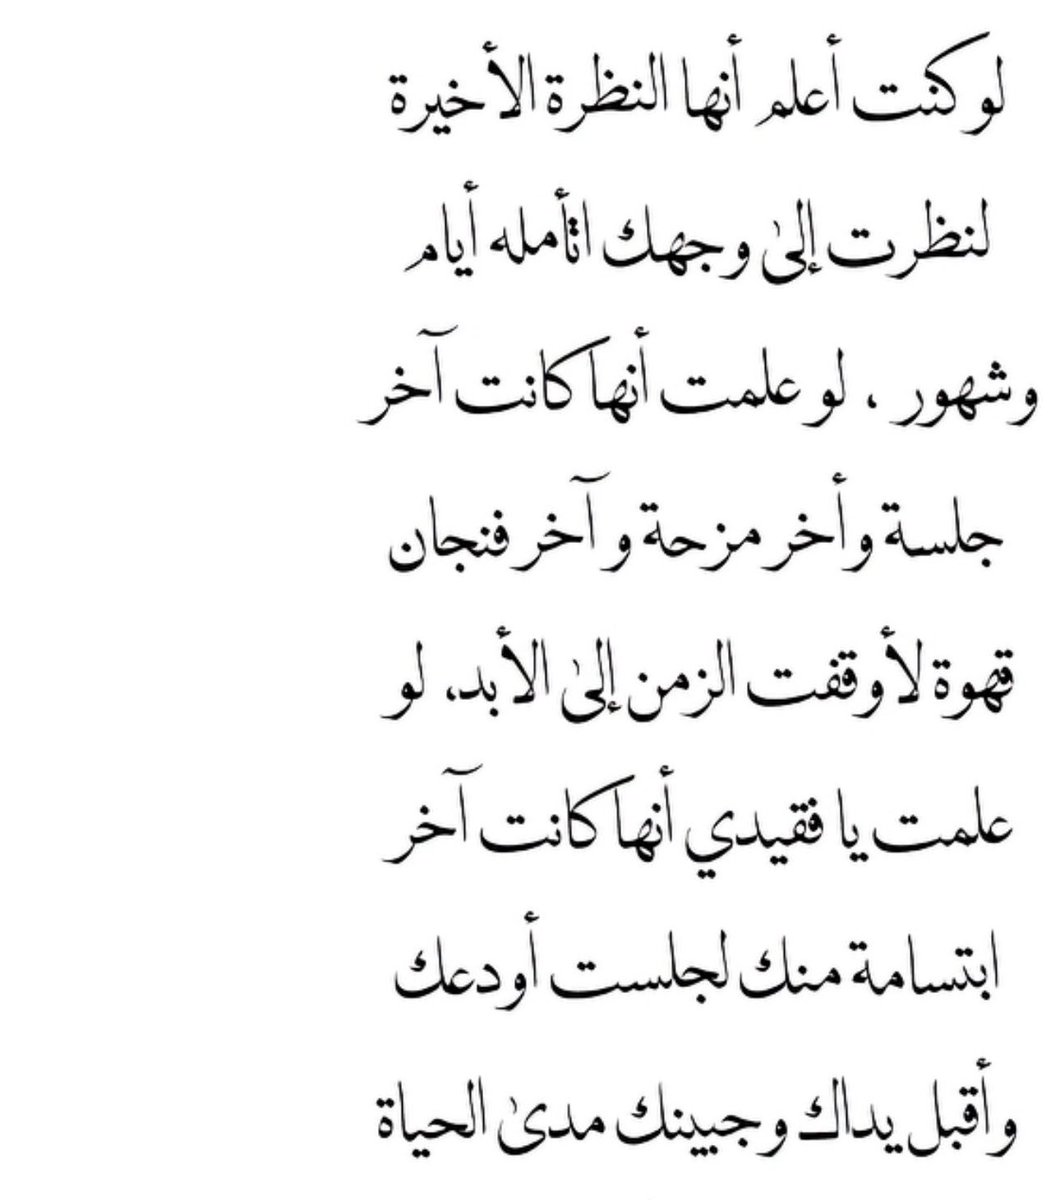 لو كنت أعلم أنها النظرة الأخيرة
لنظرت إلىٰ وجهك اتأمله أيام
وشهور ، لو علمت أنها كانت آخر
جلسة وأخر مزحة وآخر فنجان
قهوة لأوقفت الزمن إلىٰ الأبد، لو
علمت يا فقيدي أنها كانت آخر
ابتسامة منك لجلست أودعك
وأقبل يداك وجبينك مدىٰ الحياة